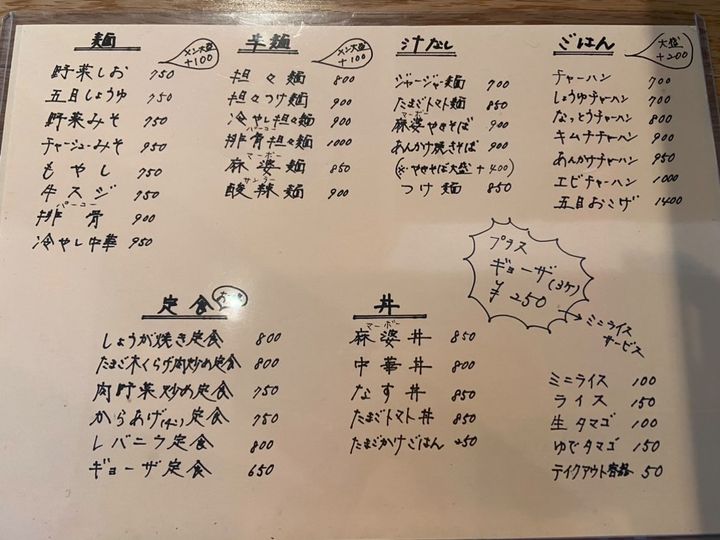 麺
メン大盛
+100
野菜しお 750
五目しょうゆ 750
野菜みそ 750
チャーシューみそ 950
もやし 750
牛スジ 950
パーコー
排骨 900
冷やし中華 950
辛麺
メン大盛
+100
担々麺 800
担々つけ麺 900
冷やし担々麺 900
パーコー
排骨担々麺 1000
マーボー
麻婆麺 850
サンラー
酸辣麺 900
汁なし
ジャージャー麺 700
たまごトマト麺 850
マーボー
麻婆やきそば 900
あんかけ焼きそば 900
(※やきそば大盛+400)
つけ麺 850
ごはん
大盛
+200
チャーハン 700
しょうゆチャーハン 700
なっとうチャーハン 800
キムチチャーハン 900
あんかけチャーハン 950
エビチャーハン 1000
五目おこげ 1400
プラス
ギョーザ(3ケ)
¥250
→ミニライス
サービス
定食
しょうが焼き定食 800
たまご木くらげ肉炒め定食 800
肉野菜炒め定食 750
からあげ定食 750
レバニラ定食 800
ギョーザ定食 650
丼
マーボー
麻婆丼 850
中華丼 800
なす丼 850
たまごトマト丼 850
たまごかけごはん 250
ミニライス 100
ライス 150
生タマゴ 100
ゆでタマゴ 150
テイクアウト容器 50